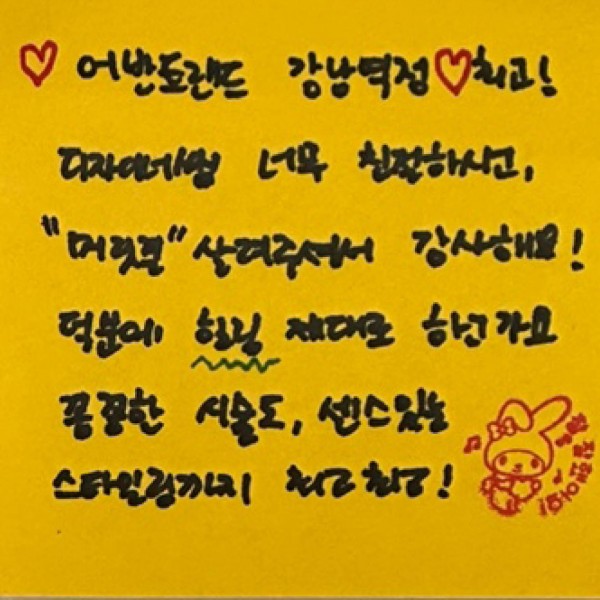 ♡ 어반트랜드 강남역점 ♡ 최고!
디자이너쌤 너무 친절하시고,
"머릿결" 살려주셔서 감사해요!
덕분에 힐링 제대로 하고가요
꼼꼼한 시술도, 센스있는
스타일링까지 최고최고!